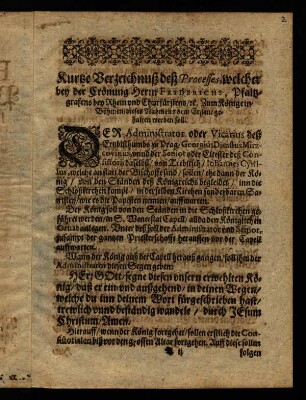 2.
Kurtze Verzeichnuß deß Processes, welcher
bey der Crönung Herrn FRIDERICHS, Pfaltz-
grafens bey Rhein und Churfürstens / ꝛc. Zum Könige in
Böhmen / dieses Nahmens dem Ersten / ge-
halten werden soll.
DER Administrator oder Vicarius deß
Ertzbisthumbs zu Prag / Georgius Dicastus Mirz-
covinus, unnd der Senior oder Eltester deß Con-
sistorii daselbst / von / Johannes Cyril-
lus, welche an statt der Bischoffe sind / sollen / ehe dann der Kö-
nig / von den Ständen deß Königreichs begleitet / inn die
Schloßkirchen kompt / in derselben Kirchen sonderbaren Sa-
cristey / wie es die Papisten nennen / auffwarten.
Der König soll von den Ständen in die Schloßkirchen ge-
führet werden / in S. Wenceslai Capell / allda den Königlichen
Ornat anlegen. Unter deß soll der Administrator und Senior,
zusampt der gantzen Priesterschafft heraussen vor der Capell
auffwarten.
Wann der König auß der Capell herauß gangen / soll ihm der
Administrator diesen Segen geben:
HErr GOtt / segne diesen unsern erwehlten Kö-
nig / daß er ein- und außgehend / in deinen Wegen /
welche du inn deinem Wort fürgeschrieben hast /
trewlich unnd beständig wandele / durch JEsum
Christum / Amen.
Hierauff / wenn der König fortgehet / sollen erstlich die Con-
sistorialen biß vor den grossen Altar fortgehen. Auff diese sollen
A ij
folgen